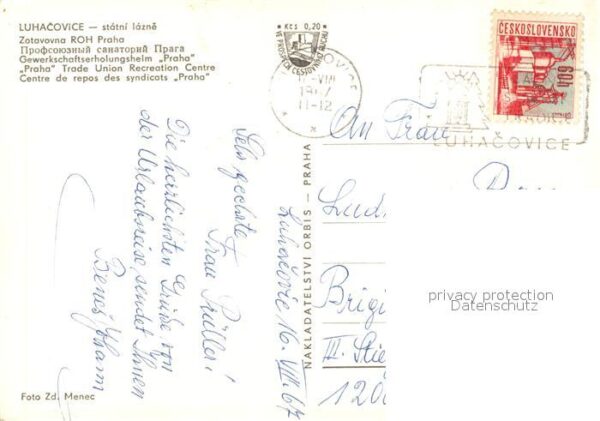 LUHAČOVICE — státní lázně
Zotavovna ROH Praha
Профсоюзный санаторий Прага
Gewerkschaftserholungsheim „Praha”
„Praha” Trade Union Recreation Centre
Centre de repos des syndicats „Praha”
Kčs 0,20
ČESKOSLOVENSKO
LUHAČOVICE
11-12
NAKLADATELSTVÍ ORBIS — PRAHA
Luhačovice 16. VIII. 67
Sehr geehrte
Frau Prüller!
Die herzlichsten Grüße von
der Urlaubsreise sendet Ihnen
Beneš Johann
An Frau
Brigi
III. Stie
120
privacy protection
Datenschutz
Foto Zd. Menec